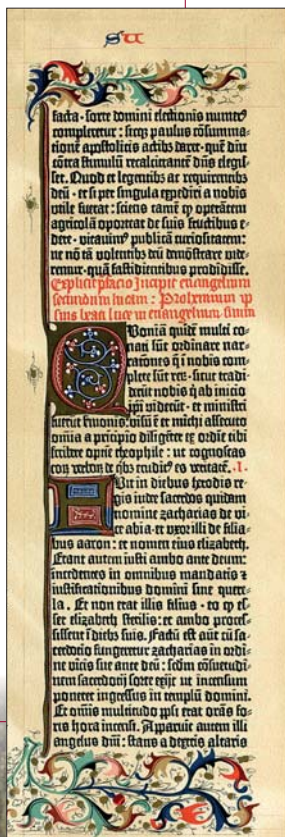 facta · sorte domini electionis numerus
compleretur : sicq; paulus cōsumma-
tionē apostolicis actibus daret · quē diu
cōtra stimulū recalcitrantē dn̄s elegis-
set. Quod et legentibus ac requirentibus
deū · et si per singula expediri a nobis
utile fuerat : sciens tamē q̄ operātem
agricolā oporteat de suis fructibus e-
dere · vitavimus publicā curiositatem :
ne nō tā volentibus deū demōstrare vide-
remur · quā fastidientibus prodidisse.
Explicit pfacio Incipit evangelium
secundum lucam : Prohemium ip-
sius beati luce in evangelium suum
Quoniā quidē multi co-
nati sūt ordinare nar-
rationes q̄ ī nobis com-
plete sūt rer̄ · sicut tradi-
derūt nobis q̄ ab inicio
ipī viderūt · et ministri
fuerūt s̄monis : visū ē et michi assecuto
omīa a prīcipio diligēter ex ordīe tibi
scribere optīe theophile : ut cognoscas
eoɿ verboɿ de qbꝫ eruditꝰ es veritatē. .I.
Fuit in diebus herodis re-
gis iudee sacerdos quidam
nomine zacharias de vi-
ce abia · et uxor illi de filia-
bus aaron : et nomen eius elizabeth.
Erant autem iusti ambo ante deum :
incedentes in omnibus mandatis et
iustificationibus domini sine quere-
la. Et non erat illis filius · eo q̄ es-
set elizabeth sterilis : et ambo proces-
sissent ī diebꝫ suis. Factū est aūt cū sa-
cerdotio fungeretur zacharias in ordi-
ne vicis sue ante deū : scd̄m cōsuetudi-
nem sacerdotij sorte exijt ut incensum
poneret ingressus in templū domini.
Et om̄is multitudo ppl̄i erat orās fo-
ris hora incensi. Apparuit autem illi
angelus dn̄i : stans a dextris altaris